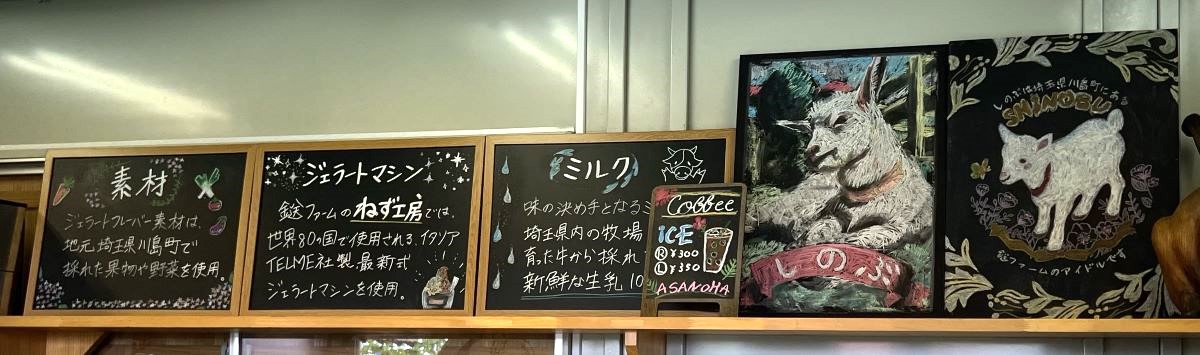 素材
ジェラートフレーバー素材は、
地元、埼玉県川島町で
採れた果物や野菜を使用。
ジェラートマシン
ファームのねず工房では、
世界80ヶ国で使用される、イタリア
TELME社製、最新式
ジェラートマシンを使用。
ミルク
味の決め手となるミ
埼玉県内の牧場
育った牛から採れ
新鮮な生乳 10
Coffee
ICE
R ¥300
L ¥350
ASANOHA
しのぶ
しのぶは埼玉県川島町にある
SHINOBU
ファームのアイドルです